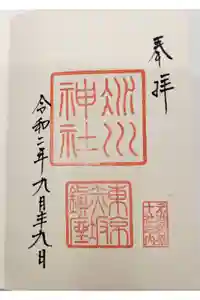 奉拝
氷川
神社
東京
赤坂
鎮座
令和二年九月廿九日